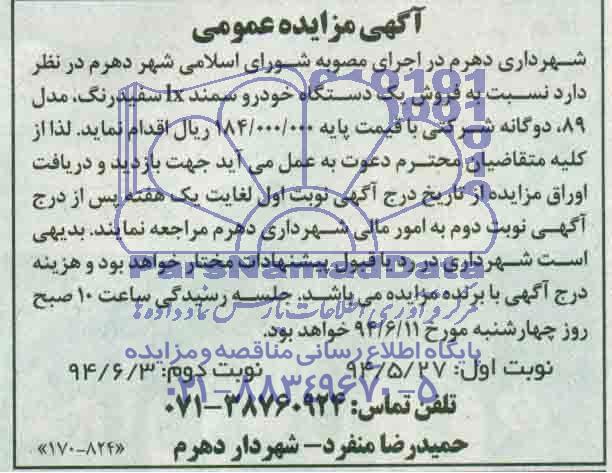 آگهی مزایده عمومی
شهرداری دهرم در اجرای مصوبه شورای اسلامی شهر دهرم در نظر
دارد نسبت به فروش یک دستگاه خودرو سمند lx سفیدرنگ، مدل
۸۹، دوگانه شرکتی با قیمت پایه ۱۸۴/۰۰۰/۰۰۰ ریال اقدام نماید. لذا از
کلیه متقاضیان محترم دعوت به عمل می آید جهت بازدید و دریافت
اوراق مزایده از تاریخ درج آگهی نوبت اول لغایت یک هفته پس از درج
آگهی نوبت دوم به امور مالی شهرداری دهرم مراجعه نمایند. بدیهی
است شهرداری در رد یا قبول پیشنهادات مختار خواهد بود و هزینه
ParsNamadData
درج آگهی با برنده مزایده می باشد. جلسه رسیدگی ساعت ۱۰ صبح
مرکز فرآوری اطلاعات پارس نماد داده ها
روز چهارشنبه مورخ ۹۴/۶/۱۱ خواهد بود.
پایگاه اطلاع رسانی مناقصه و مزایده
نوبت اول: ۹۴/۵/۲۷ نوبت دوم: ۹۴/۶/۳
۰۲۱-۸۸۳۴۹۶۷۰-۵
تلفن تماس: ۳۸۷۶۰۹۲۴-۰۷۱
حمیدرضا منفرد- شهردار دهرم
«۱۷۰-۸۲۴»